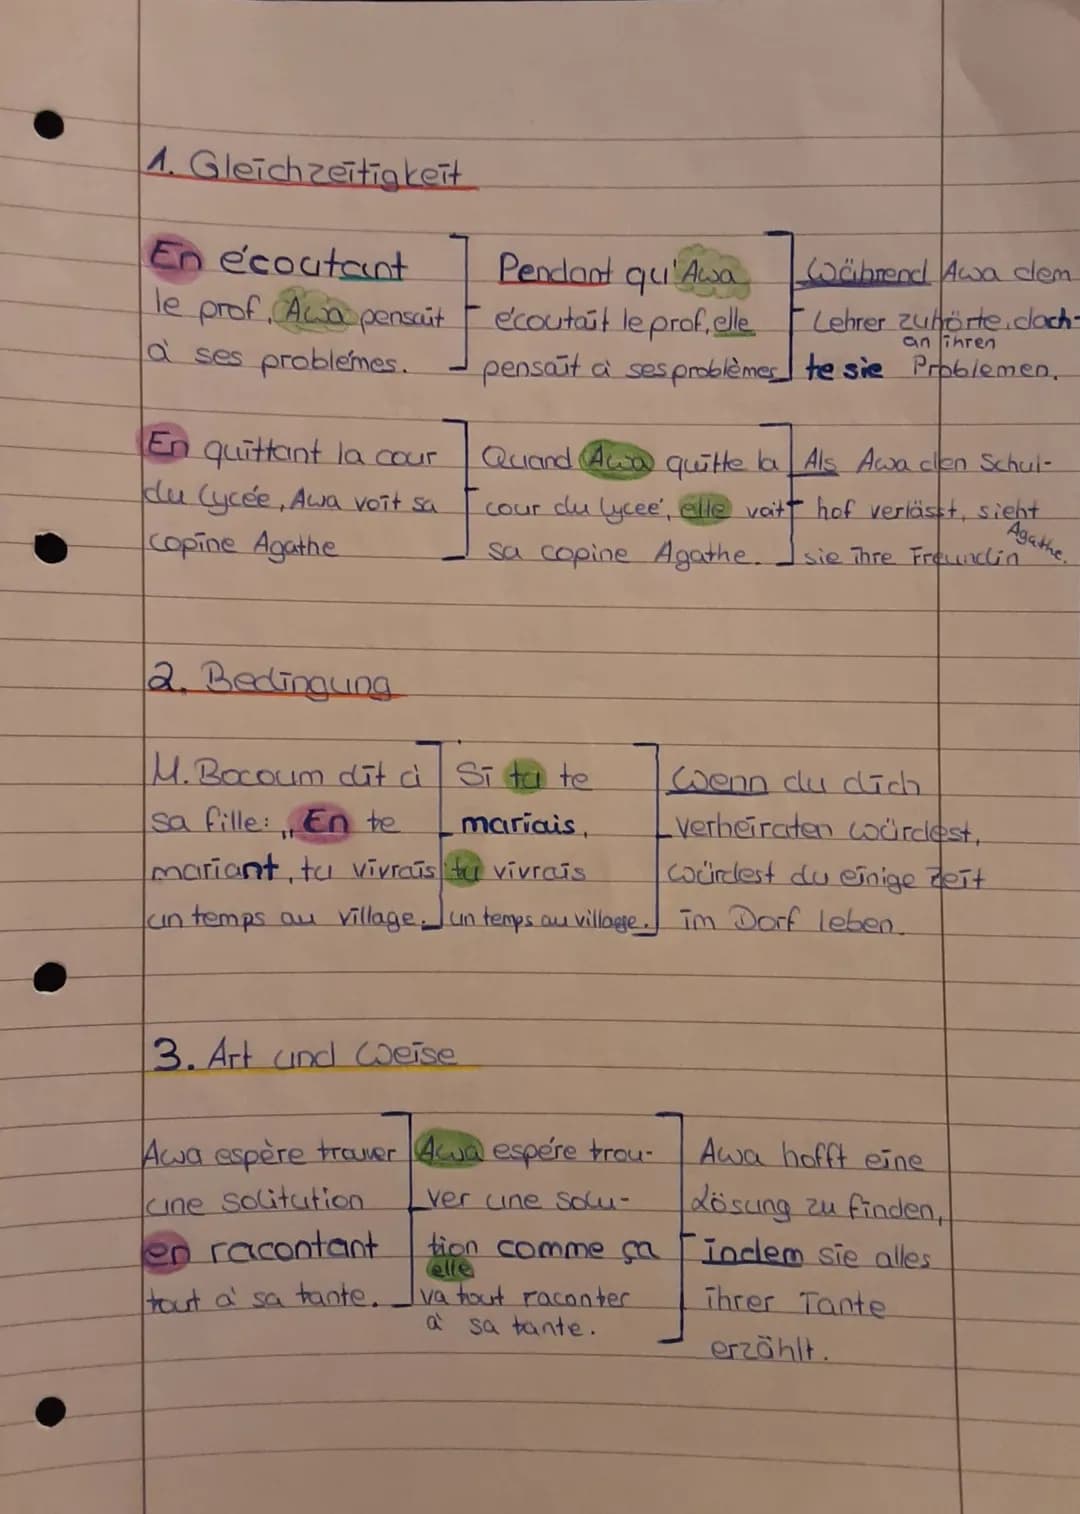 1. Gleichzeitigkeit
En écoutant
le prof, Awa pensait
à ses problémes.
Pendant qu'Awa
écoutait le prof, elle
pensait à ses problèmes
Während Awa dem
Lehrer zuhörte, dach-
an ihren
te sie Problemen.
En quittant la cour
du lycée, Awa voit sa
copine Agathe
Quand Awa quitte la
cour du lycée, elle voit
sa copine Agathe.
Als Awa den Schul-
hof verlässt, sieht
Agathe.
sie ihre Freundin
2. Bedingung
M. Bocoum dit à
sa fille: „En te
mariant, tu vivrais
un temps au village.
Si tu te
mariais,
tu vivrais
un temps au village.
Wenn du dich
verheiraten würdest,
würdest du einige Zeit
im Dorf leben.
3. Art und Weise
Awa espère trouver
une solitution
en racontant
tout à sa tante.
Awa espére trou-
ver une solu-
tion comme ça
elle
va tout raconter
à sa tante.
Awa hofft eine
Lösung zu finden,
indem sie alles
ihrer Tante
erzählt.